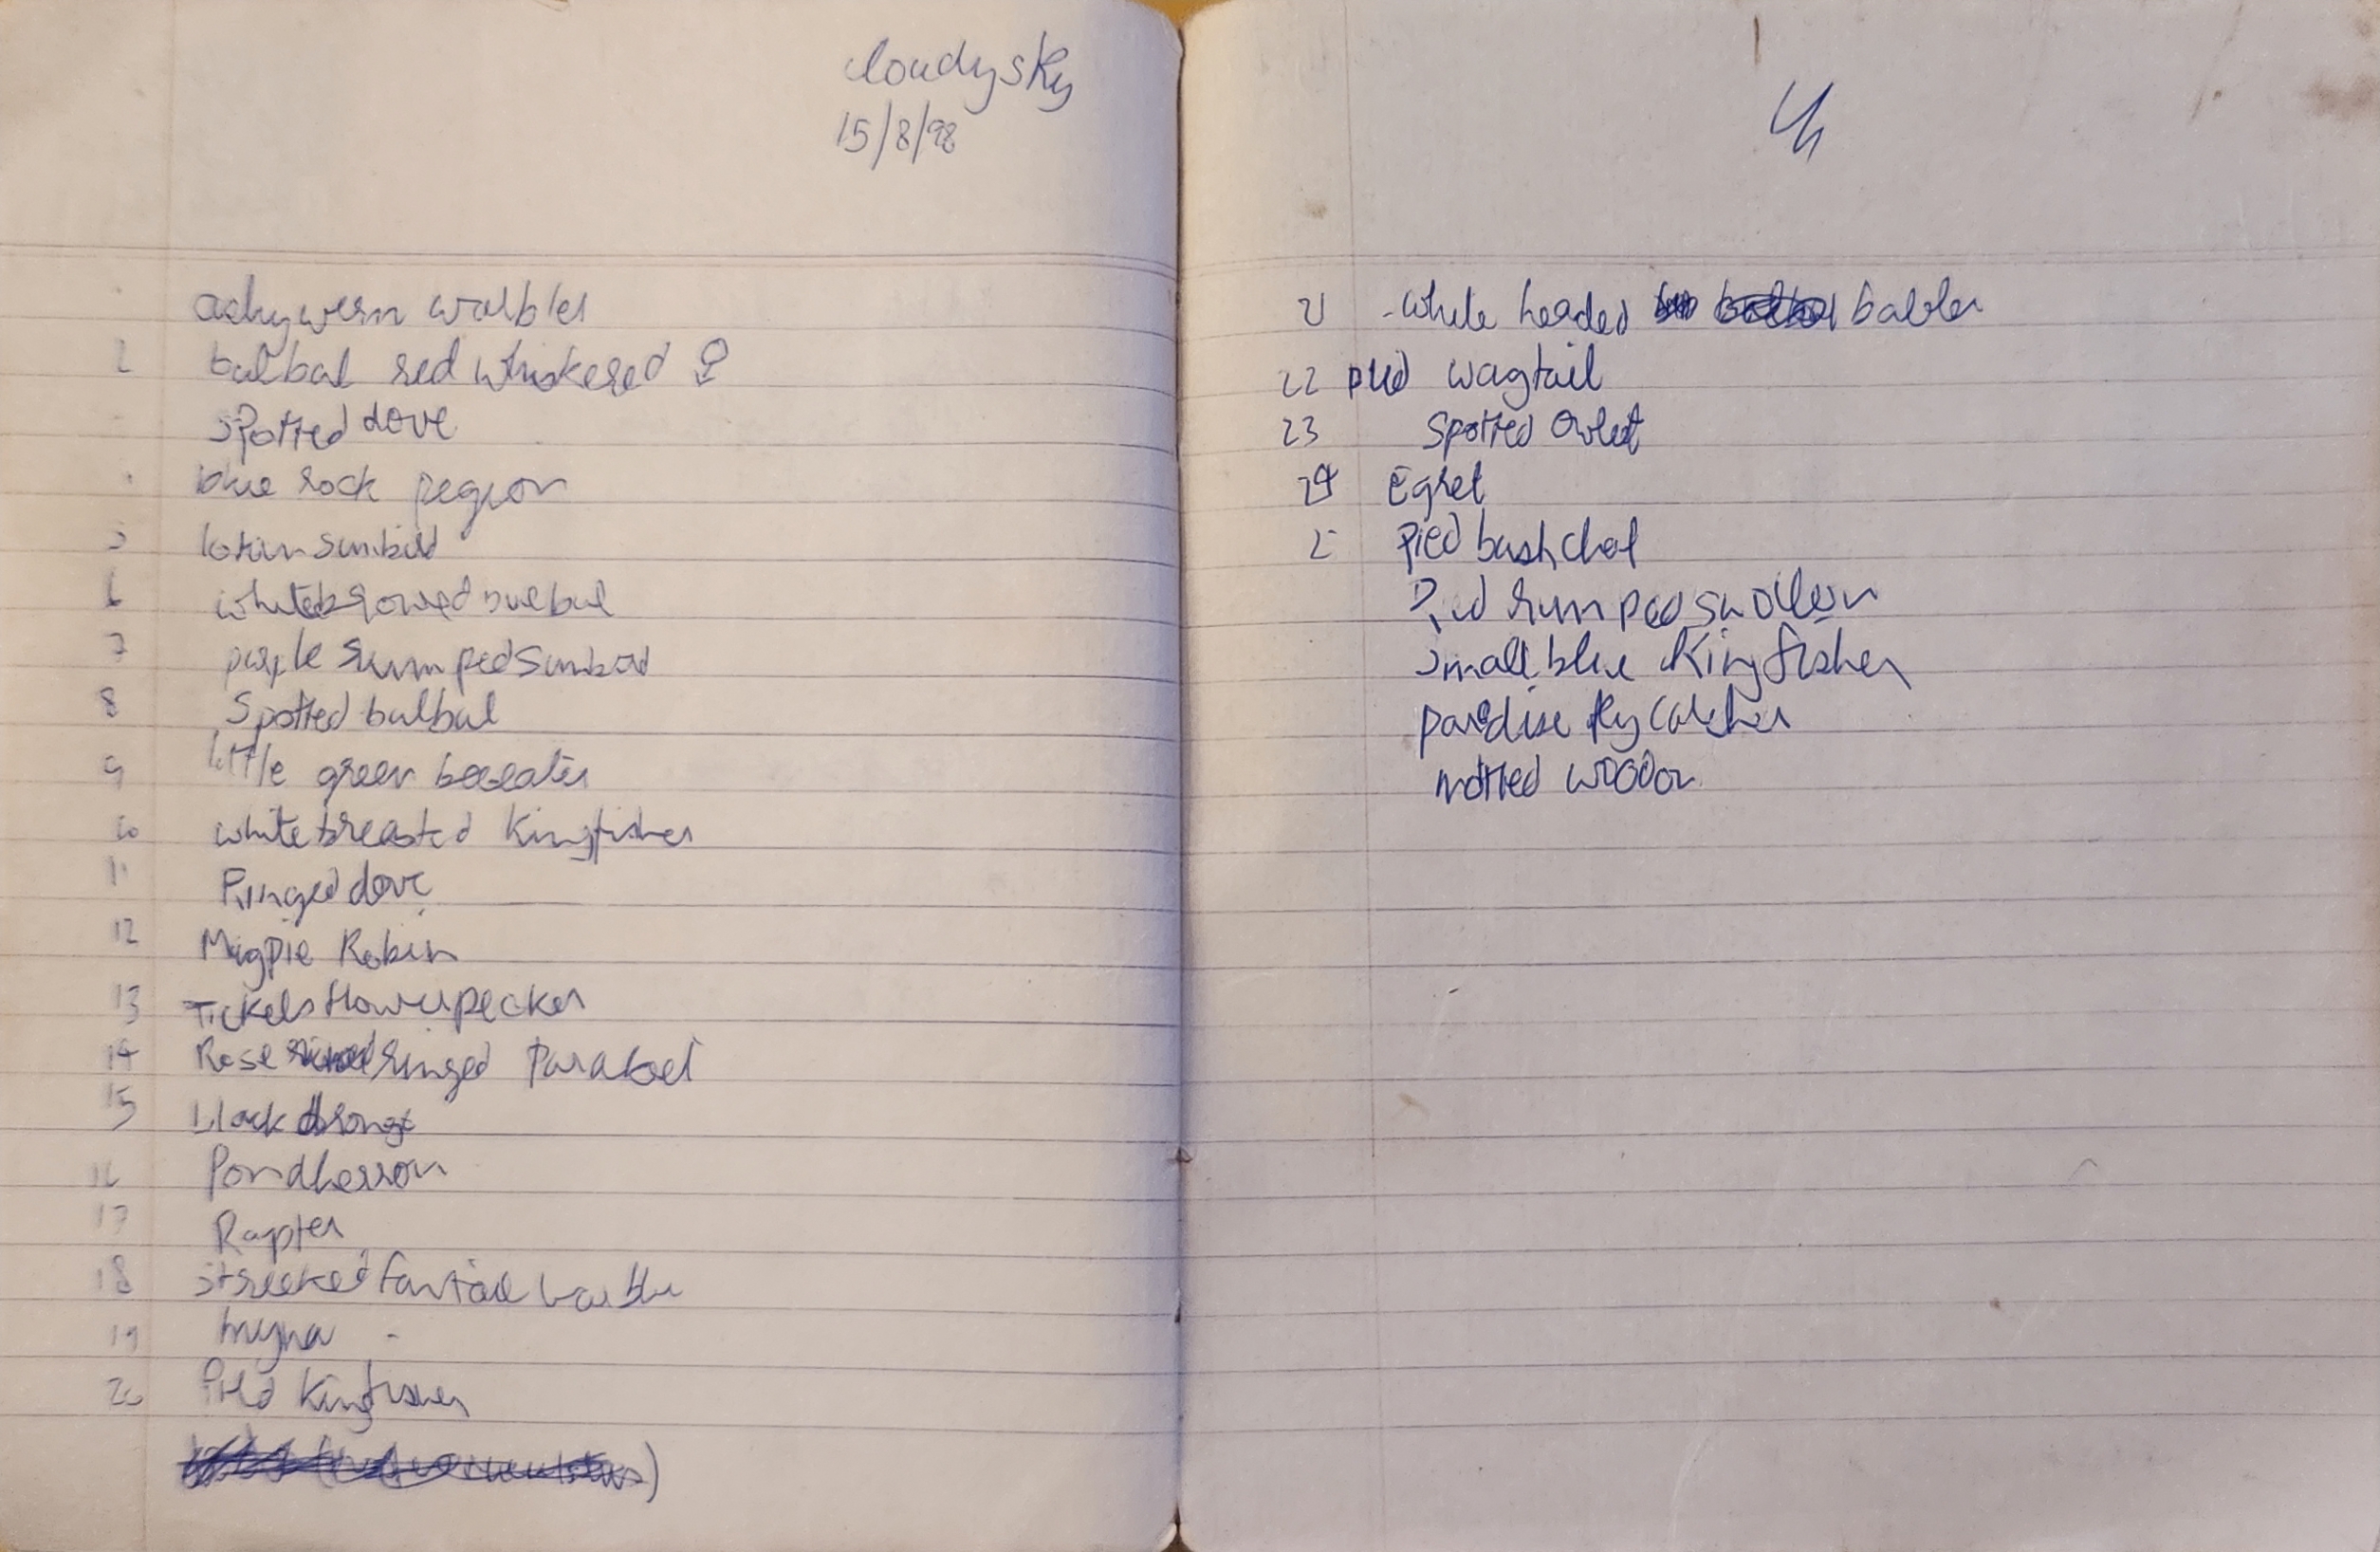 cloudy sky
15/8/98
ashy wern warbler
2 bulbul red whiskered ♀
spotted dove
blue rock pegion
5 lotun sunbird
6 whitebrowed bulbul
7 purple rumped sunbird
8 Spotted bulbul
9 little green beeeater
10 white breasted Kingfisher
11 Ringed dove
12 Magpie Robin
13 Tickels flowerpecker
14 Rose ringed Parakeet
15 black drongo
16 Pondherron
17 Rapter
18 streeked fantail warbler
19 myna -
20 Pied Kingfisher
21 - white headed babler
22 pied wagtail
23 Spotted Owlet
24 Egret
2 Pied bushchat
Red rumped swollow
Small blue Kingfisher
paradise fly catcher
mottled